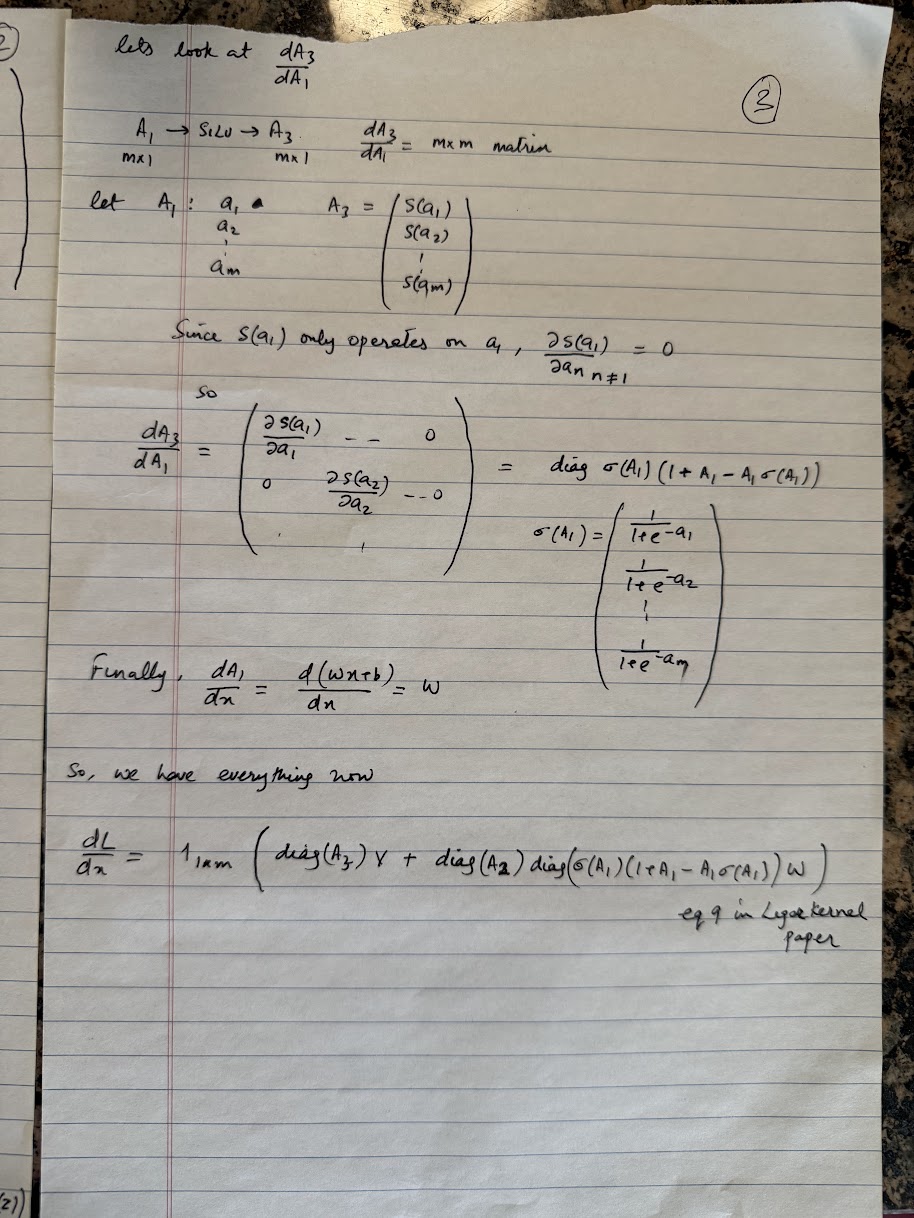 lets look at dA₃/dA₁
③
A₁ → SiLU → A₃    dA₃/dA₁ = m×m matrix
m×1    m×1
let A₁ : a₁    A₃ = ( S(a₁)
a₂    S(a₂)
⋮    ⋮
aₘ    S(aₘ) )
Since S(a₁) only operates on a₁, ∂S(a₁)/∂aₙ n≠1 = 0
so
dA₃/dA₁ = ( ∂S(a₁)/∂a₁ -- 0
0 ∂S(a₂)/∂a₂ --- 0 ) = diag σ(A₁)(1 + A₁ - A₁σ(A₁))
σ(A₁) = ( 1/(1+e^-a₁)
1/(1+e^-a₂)
⋮
1/(1+e^-aₘ) )
Finally, dA₁/dx = d(Wx+b)/dx = W
So, we have everything now
dL/dx = 1₁ₓₘ ( diag(A₃) V + diag(A₂) diag(σ(A₁)(1+A₁ - A₁σ(A₁)) W )
eq 9 in Liger Kernel
paper
2
(2))